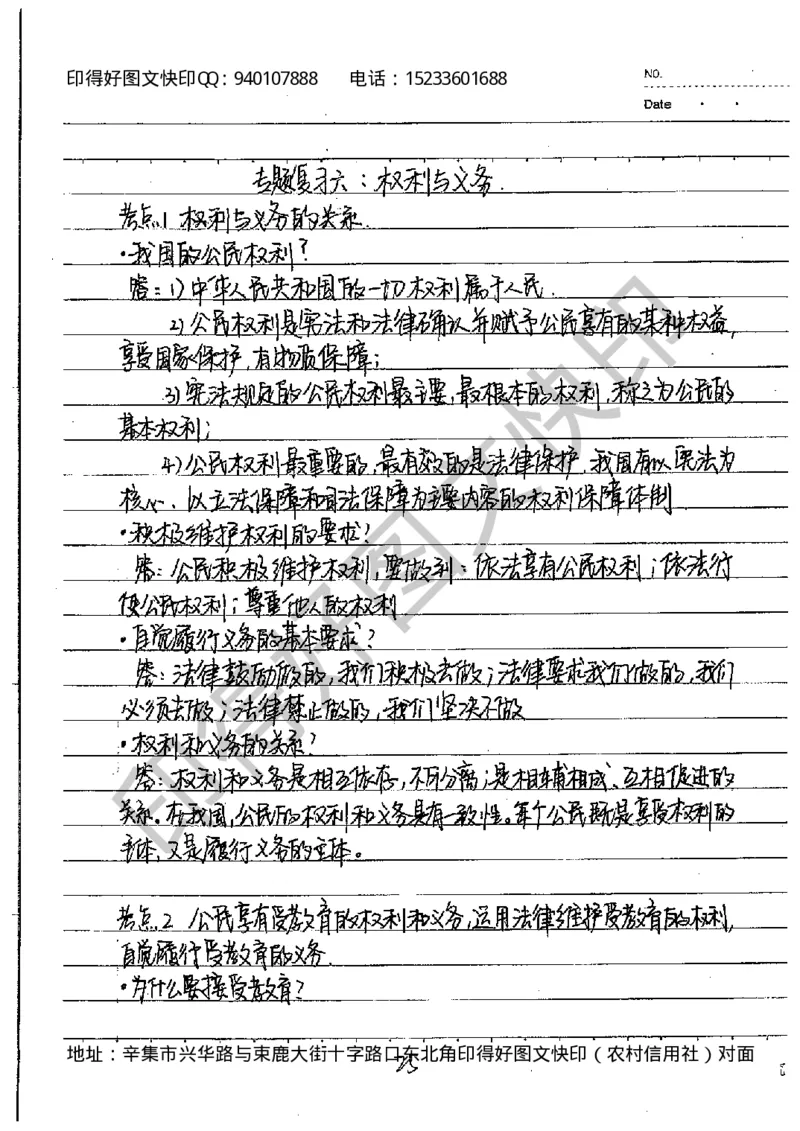 印得好图文快印QQ：940107888 电话：15233601688
NO.
Date
专题复习六：权利与义务.
考点.1 权利与义务的关系.
·我国的公民权利?
答：1)中华人民共和国的一切权利属于人民.
2)公民权利是宪法和法律确认并赋予公民享有的某种权益，
享受国家保护，有物质保障；
3)宪法规定的公民权利最主要,最根本的权利，称之为公民的
基本权利；
4)公民权利最重要的，最有效的是法律保护，我国有以宪法为
核心、以立法保障和司法保障为主要内容的权利保障体制
·积极维护权利的要求?
答：公民积极维护权利，要做到：依法享有公民权利；依法行
使公民权利；尊重他人的权利
·自觉履行义务的基本要求?
答：法律鼓励做的，我们积极去做；法律要求我们做的，我们
必须去做；法律禁止做的，我们坚决不做
·权利和义务的关系?
答：权利和义务是相互依存，不可分离；是相辅相成、互相促进的
关系。在我国，公民的权利和义务具有一致性。每个公民既是享受权利的
主体，又是履行义务的主体。
考点.2 公民享有受教育的权利和义务，运用法律维护受教育的权利，
自觉履行受教育的义务.
·为什么要接受教育?
地址：辛集市兴华路与束鹿大街十字路口东北角印得好图文快印（农村信用社）对面
印得好图文快印